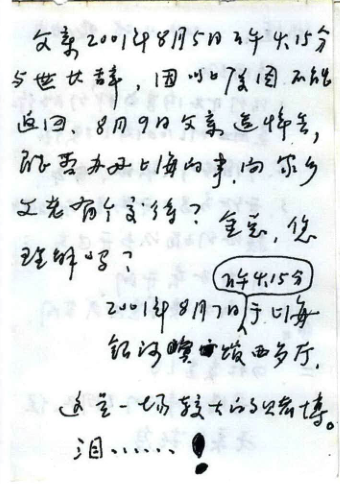 父亲2001年8月5日下午4.15分
与世长辞，因 原因不能
返回，8月9日父亲追悼会，
既要办好上海的事，向家乡
父老有个交待？ 您
理解吗？
下午4.15分
2001年8月7日于上海
银河宾 西多厅，
这是一场较大的 赌博。
泪……！